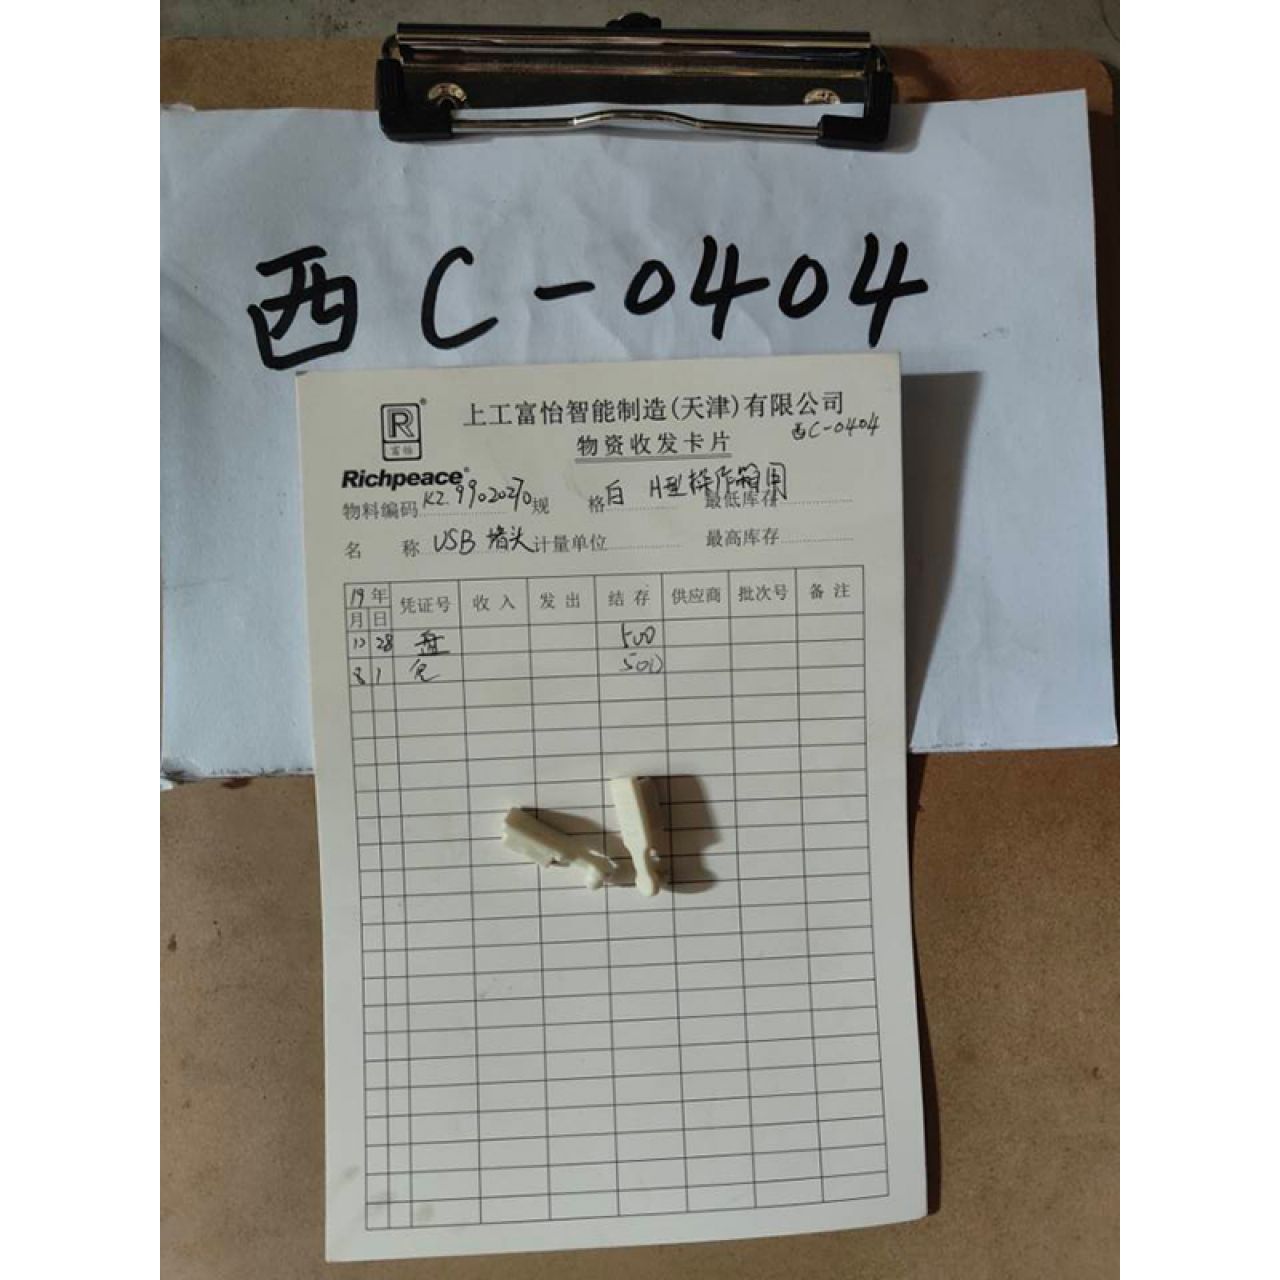 西C-0404
R®
富怡
Richpeace®
上工富怡智能制造(天津)有限公司
物资收发卡片
西C-0404
物料编码 KZ.99020270 规 格 白 H型操作箱用 最低库存
名 称 USB 堵头 计量单位 最高库存
19年 凭证号 收入 发出 结存 供应商 批次号 备注
月 日
12 28 盘 500
8 1 500